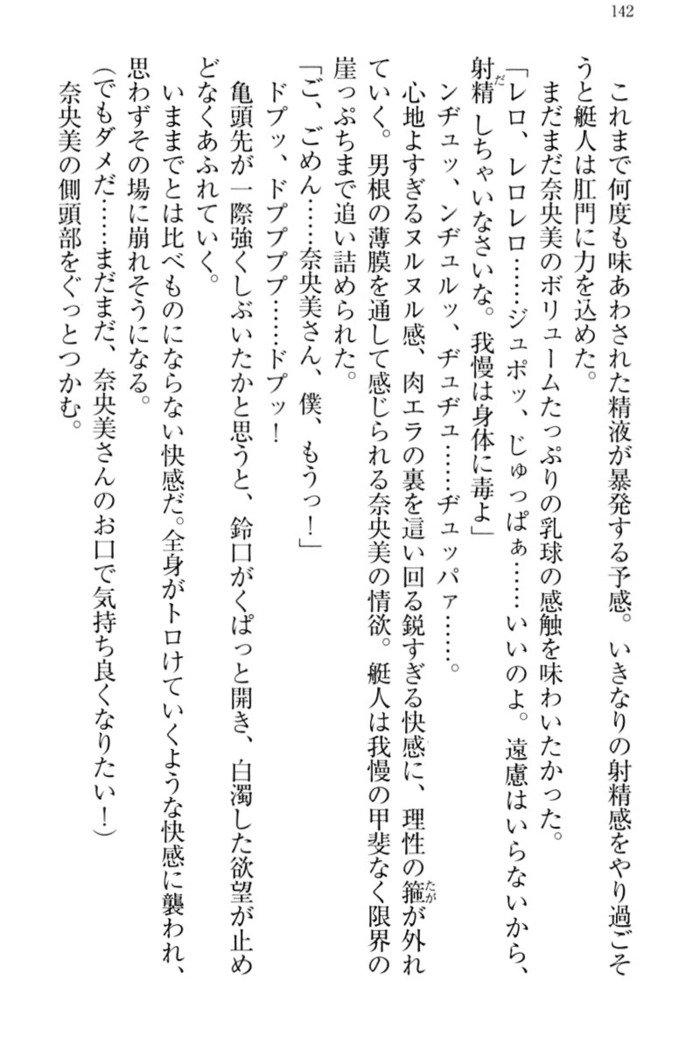 142
これまで何度も味あわされた精液が暴発する予感。いきなりの射精感をやり過ごそ
うと艇人は肛門に力を込めた。
まだまだ奈央美のボリュームたっぷりの乳球の感触を味わいたかった。
「レロ、レロレロ……ジュポッ、じゅっぱぁ……いいのよ。遠慮はいらないから、
射精しちゃいなさいな。我慢は身体に毒よ」
ンヂュッ、ンヂュルッ、ヂュヂュ……ヂュッパァ……。
心地よすぎるヌルヌル感、肉エラの裏を這い回る鋭すぎる快感に、理性の箍が外れ
ていく。男根の薄膜を通して感じられる奈央美の情欲。艇人は我慢の甲斐なく限界の
崖っぷちまで追い詰められた。
「ご、ごめん……奈央美さん、僕、もうっ！」
ドプッ、ドプププ……ドプッ！
亀頭先が一際強くしぶいたかと思うと、鈴口がくぱっと開き、白濁した欲望が止め
どなくあふれていく。
いままでとは比べものにならない快感だ。全身がトロけていくような快感に襲われ、
思わずその場に崩れそうになる。
（でもダメだ……まだまだ、奈央美さんのお口で気持ち良くなりたい！）
奈央美の側頭部をぐっとつかむ。